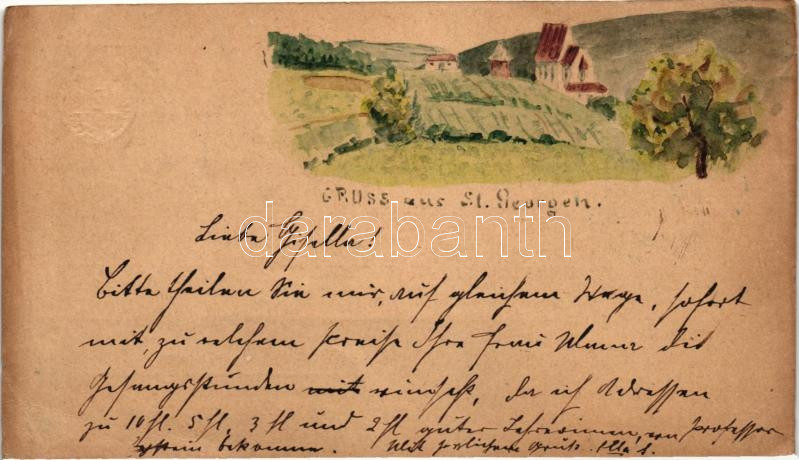 GRUSS aus St. Georgen.
darabanth
Liebe Gisella!
Bitte theilen Sie mir, auf gleichem Wege, sofort
mit, zu welchem Preise Ihre Frau Mama die
Gesangsstunden mit wünscht, da ich Adressen
zu 10 fl. 5 fl, 3 fl und 2 fl guter Lehrerinnen, von Professor
bekomme. Mit herzlichem Gruß.